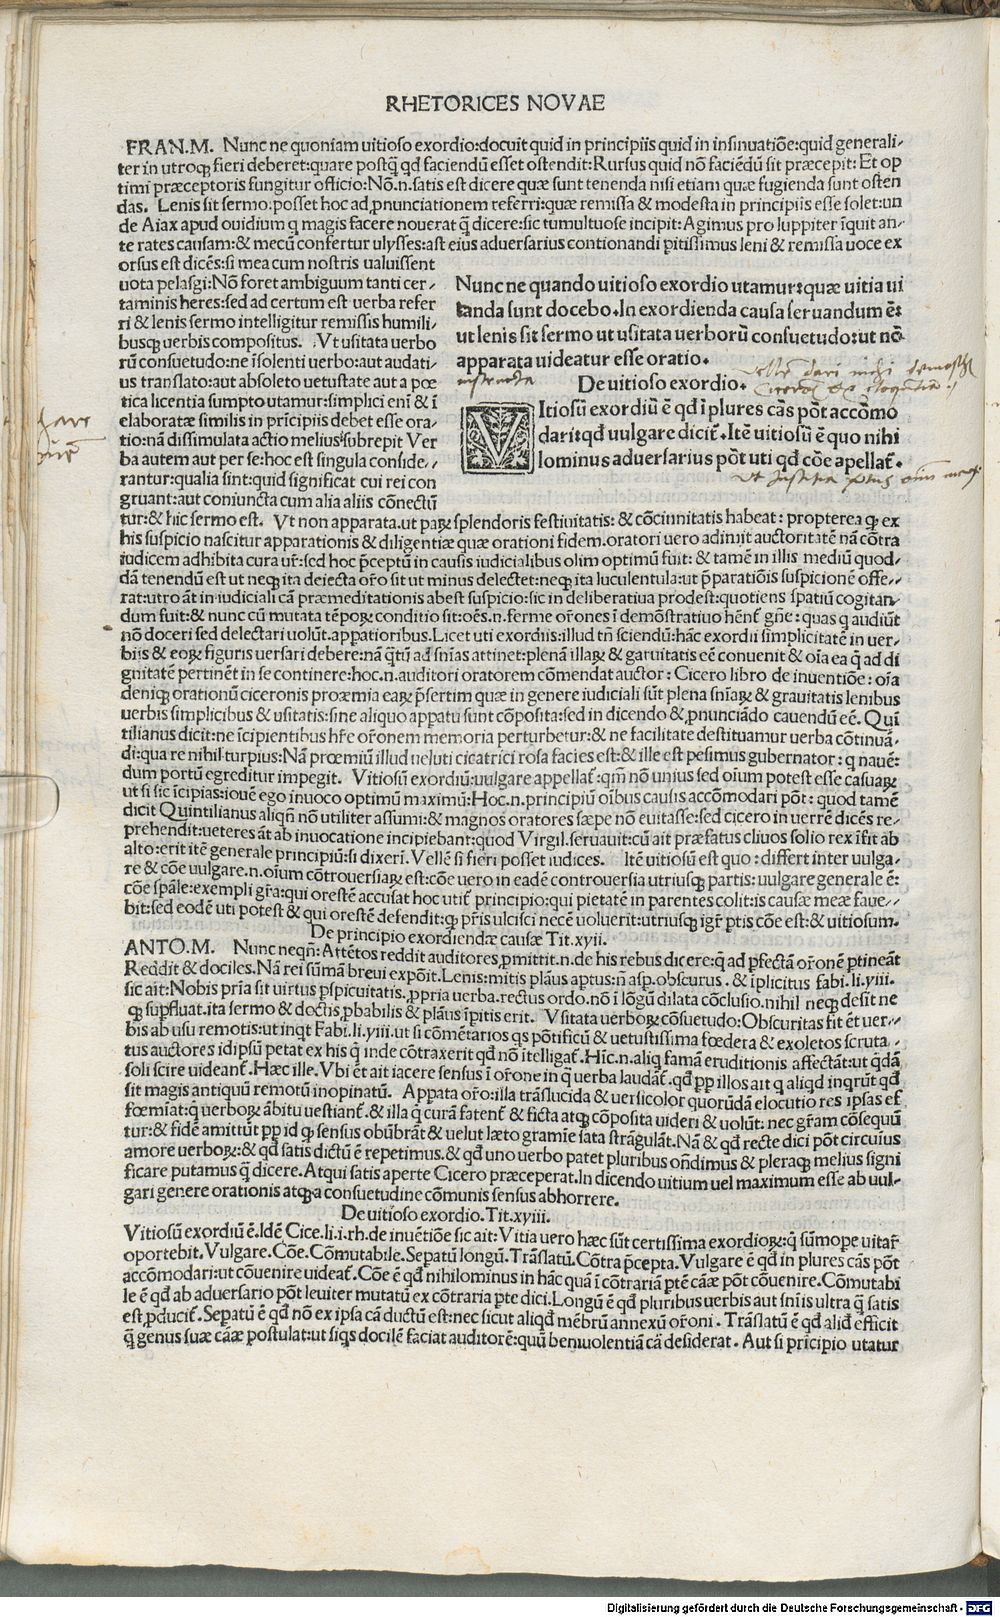 RHETORICES NOVAE
FRAN.M. Nunc ne quoniam uitioso exordio:docuit quid in principiis quid in insinuatiõe:quid generali-
ter in utroqꝫ fieri deberet:quare postq̃ qd̃ faciendũ esset ostendit:Rursus quid nõ faciẽdũ sit præcepit:Et op
timi præceptoris fungitur officio:Nõ.n.satis est dicere quæ sunt tenenda nisi etiam quæ fugienda sunt osten
das. Lenis sit sermo:posset hoc ad ꝓnunciationem referri:quæ remissa & modesta in principiis esse solet:un
de Aiax apud ouidium q magis facere nouerat q̃ dicere:sic tumultuose incipit:Agimus pro Iuppiter ĩquit an-
te rates causam:& mecũ confertur ulysses:ast eius aduersarius contionandi pitissimus leni & remissa uoce ex
orsus est dicẽs:si mea cum nostris ualuissent
uota pelasgi:Nõ foret ambiguum tanti cer-
taminis heres:sed ad certum est uerba refer
ri & lenis sermo intelligitur remissis humili-
busqꝫ uerbis compositus. Vt usitata uerbo
rũ consuetudo:ne ĩsolenti uerbo:aut audati-
us translato:aut absoleto uetustate aut a poe
tica licentia sumpto utamur:simplici eni̇̃ & ĩ
elaboratæ similis in prĩcipiis debet esse ora-
tio:nã dissimulata actio melius subrepit Ver
ba autem aut per se:hoc est singula conside-
rantur:qualia sint:quid significat cui rei con
gruant:aut coniuncta cum alia aliis cõnectũ
tur:& hic sermo est. Vt non apparata.ut paꝝ splendoris festiuitatis: & cõcinnitatis habeat: propterea qꝫ ex
Nunc ne quando uitioso exordio utamur:quæ uitia ui
tanda sunt docebo.In exordienda causa seruandum ẽ:
ut lenis sit sermo ut usitata uerborũ consuetudo:ut nõ
apparata uideatur esse oratio.
instructa
De uitioso exordio.
VItiosũ exordiũ ẽ qd̃ ĩ plures cãs põt accõmo
dari:qd̃ uulgare dicit̃. Itẽ uitiosũ ẽ quo nihi
lominus aduersarius põt uti qd̃ cõe apellat̃.
his suspicio nascitur apparationis & diligentiæ quæ orationi fidem.oratori uero adimit auctoritatẽ nã cõtra
iudicem adhibita cura ur̃:sed hoc p̃ceptũ in causis iudicialibus olim optimũ fuit: & tamẽ in illis mediũ quod-
dã tenendũ est ut neqꝫ ita deiecta or̃o sit ut minus delectet:neqꝫ ita luculentula:ut p̃paratiõis suspicionẽ offe-
rat:utro ãt in iudiciali cã præmeditationis abest suspicio:sic in deliberatiua prodest:quotiens spatiũ cogitan-
dum fuit:& nunc cũ mutata tẽpoꝝ conditio sit:oẽs.n.ferme or̃ones ĩ demõstratiuo hẽnt̃ gñe: quas q audiũt
nõ doceri sed delectari uolũt.appatioribus.Licet uti exordiis:illud tñ sciendũ:hãc exordii simplicitatẽ in uer-
biis & eoꝝ figuris uersari debere:nã q̃tũ ad sñias attinet:plenã illaꝝ & garuitatis eẽ conuenit & oĩa ea q̃ ad di
gnitatẽ pertinẽt in se continere:hoc.n.auditori oratorem cõmendat auctor: Cicero libro de inuentiõe: oĩa
deniqꝫ orationũ ciceronis proæmia eaꝝ p̃sertim quæ in genere iudiciali sũt plena sñiaꝝ & grauitatis lenibus
uerbis simplicibus & usitatis:sine aliquo appatu sunt cõposita:sed in dicendo & ꝓnunciãdo cauendũ eẽ. Quĩ
tilianus dicit:ne ĩcipientibus hr̃e or̃onem memoria perturbetur:& ne facilitate destituamur uerba cõtinuã-
di:qua re nihil turpius:Nã proœmiũ illud ueluti cicatrici rõsa facies est:& ille est pesimus gubernator: q nauẽ:
dum portũ egreditur impegit. Vitiosũ exordiũ:uulgare appellat̃:qm̃ nõ unius sed oĩum potest esse casuaꝝ
ut si sic ĩcipias:iouẽ ego inuoco optimũ maximũ:Hoc.n.principiũ oĩbus causis accõmodari põt: quod tamẽ
dicit Quintilianus aliqñ nõ utiliter assumi:& magnos oratores sæpe nõ euitasse:sed cicero in uerrẽ dicẽs re-
prehendit:ueteres ãt ab inuocatione incipiebant:quod Virgil.seruauit:cũ ait præfatus cliuos solio rex ĩfit ab
alto:erit itẽ generale principiũ:si dixeri.Vellẽ si fieri posset iudices. Itẽ uitiosũ est quo: differt inter uulga-
re & cõe uulgare.n.oĩum cõtrouersiaꝝ est:cõe uero in eadẽ controuersia utriusqꝫ partis: uulgare generale ẽ:
cõe spãle:exempli gr̃a:qui orestẽ accusat hoc utit̃ principio:qui pietatẽ in parentes colit:is causæ meæ faue-
bit:sed eodẽ uti potest & qui orestẽ defendit:qꝫ pr̃is ulcisci necẽ uoluerit:utriusqꝫ igr̃ ptis cõe est:& uitiosum.
De principio exordiendæ causæ Tit.xvii.
ANTO.M. Nunc neqñ:Attẽtos reddit auditores ꝓmittit.n.de his rebus dicere:q̃ ad ꝑfectã or̃onẽ ꝑtineãt
Reddit & dociles.Nã rei sũmã breui expõit.Lenis:mitis plãus aptus:ñ asp.obscurus.& ĩplicitus fabi.li.viii.
sic ait:Nobis prĩa sit uirtus ꝑspicuitatis ꝓpria uerba.rectus ordo.nõ ĩ lõgũ dilata cõclusio.nihil neqꝫ desit ne
qꝫ supfluat.ita sermo & doctis ꝓbabilis & plãus ĩpitis erit. Vsitata uerboꝝ cõsuetudo:Obscuritas fit ẽt uer-
bis ab usu remotis:ut inqt Fabi.li.viii.ut si cõmẽtarios qs põtificũ & uetustissima fœdera & exoletos scruta-
tus auctores id ipsũ petat ex his q̃ inde cõtraxerit qd̃ nõ ĩtelligat̃.Hĩc.n.aliq famã eruditionis affectãt:ut q̃dã
soli scire uideant̃.Hæc ille.Vbi ẽt ait iacere sensus ĩ or̃one in q̃ uerba laudãt̃.qd̃ pp illos ait q aliqd inqrũt qd̃
sit magis antiquũ remotũ inopinatũ. Appata or̃o:illa trãslucida & uersicolor quorũdã elocutio res ipsas ef
fœmĩat:q̃ uerboꝝ ãbitu uestiant̃.& illa q̃ curã fatent̃ & ficta atqꝫ cõposita uideri & uolũt: nec gr̃am cõsequũ
tur:& fidẽ amittũt pp id qꝫ sensus obũbrãt & uelut læto gramĩe sata strãgulãt.Nã & qd̃ recte dici põt circuĩus
amore uerboꝝ:& qd̃ satis dictũ ẽ repetimus.& qd̃ uno uerbo patet pluribus oñdimus & pleraqꝫ melius signi
ficare putamus q̃ dicere.Atqui satis aperte Cicero præceperat.In dicendo uitium uel maximum esse ab uul-
gari genere orationis atqꝫ a consuetudine cõmunis sensus abhorrere.
De uitioso exordio.Tit.xviii.
Vitiosũ exordiũ ẽ.Idẽ Cice.li.i.rh.de inuẽtiõe sic ait: Vitia uero hæc sũt certissima exordioꝝ:q̃ sũmope uitar̃
oportebit.Vulgare.Cõe.Cõmutabile.Sepatũ longũ.Trãslatũ.Cõtra p̃cepta.Vulgare ẽ qd̃ in plures cãs põt
accõmodari:ut cõuenire uideat̃.Cõe ẽ qd̃ nihilominus in hãc quã ĩ cõtrariã ptẽ cãæ põt cõuenire.Cõmutabi
le ẽ qd̃ ab aduersario põt leuiter mutatũ ex cõtraria ꝑte dici.Longũ ẽ qd̃ pluribus uerbis aut sñiis ultra q̃ satis
est ꝓducit̃.Sepatũ ẽ qd̃ nõ ex ipsa cã ductũ est:nec sicut aliqd̃ mẽbrũ annexũ or̃oni. Trãslatũ ẽ qd̃ alid̃ efficit
q̃ genus suæ cãæ postulat:ut siqs docilẽ faciat auditorẽ:quũ beniuolentiã cã desiderat. Aut si prĩcipio utatur
Digitalisierung gefördert durch die Deutsche Forschungsgemeinschaft - DFG